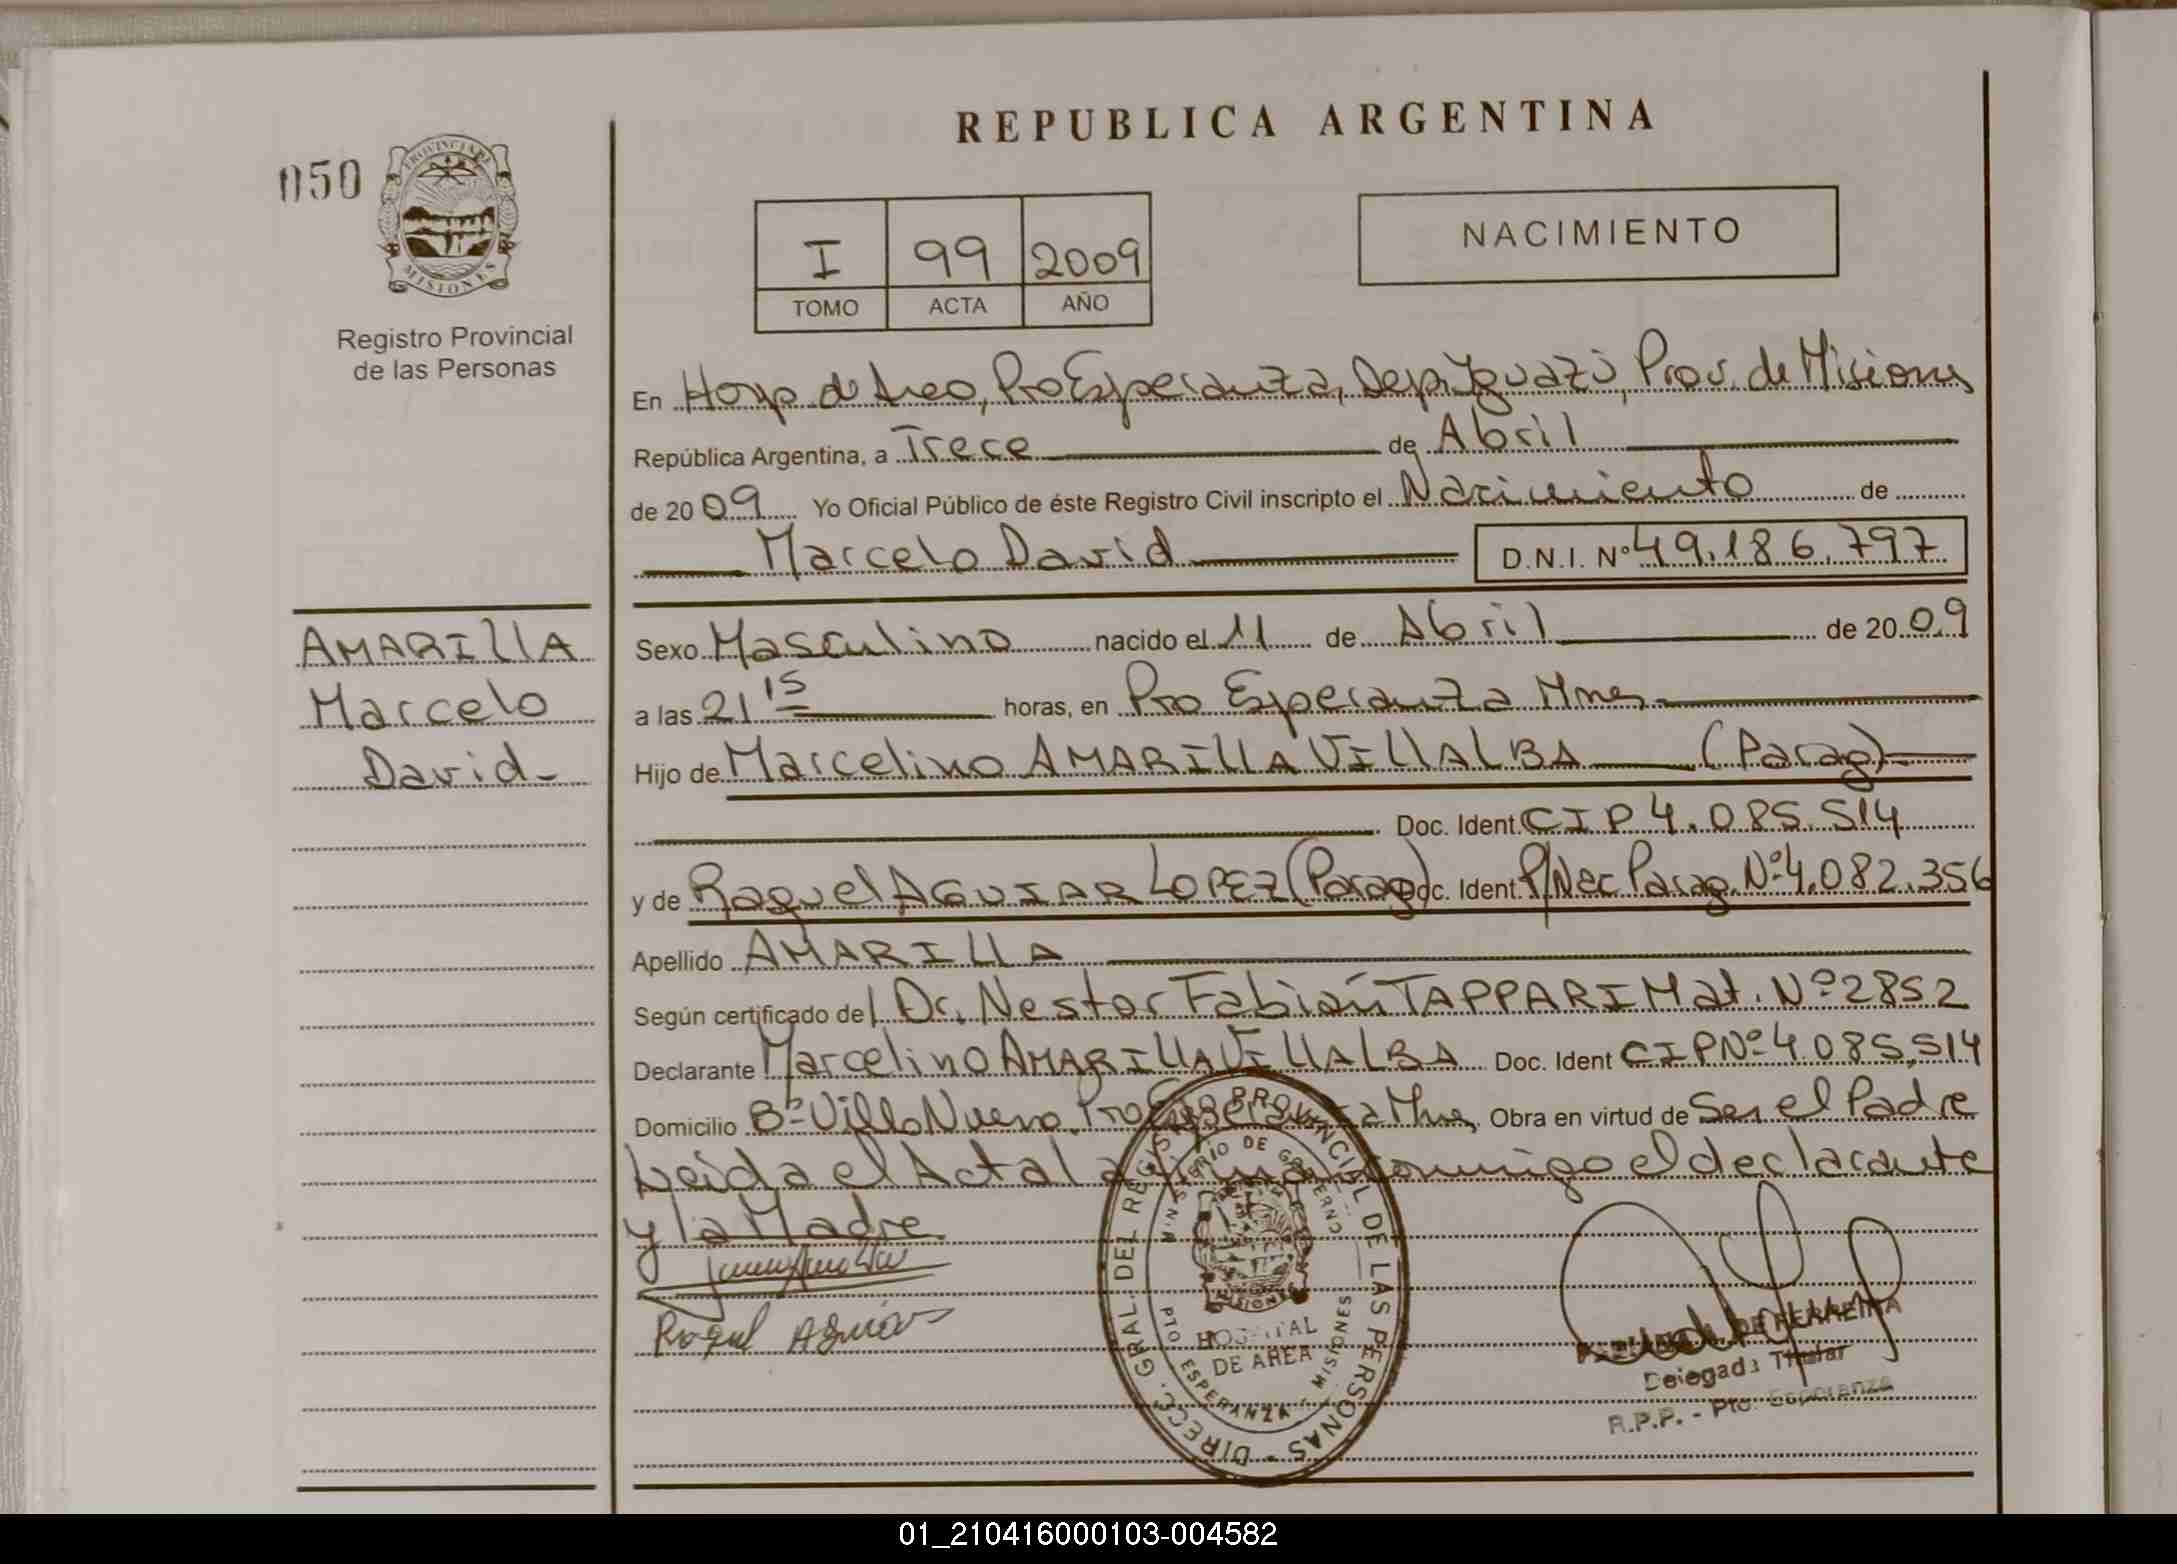 REPUBLICA ARGENTINA
050
PROVINCIA DE
MISIONES
Registro Provincial
de las Personas
I 99 2009
TOMO ACTA AÑO
NACIMIENTO
En Hosp de Area, Pto Esperanza, Dep. Yguazú, Prov. de Misiones
República Argentina, a Trece de Abril
de 2009 Yo Oficial Público de éste Registro Civil inscripto el Nacimiento de
Marcelo David D.N.I. Nº 49.186.797
AMARILLA
Marcelo
David-
Sexo Masculino nacido el 11 de Abril de 2009
a las 21 15 horas, en Pto Esperanza Mnes
Hijo de Marcelino AMARILLA VILLALBA (Parag)
Doc. Ident. CIP 4.085.514
y de Raquel AGUIAR LOPEZ (Parag) Doc. Ident. P/Nac Parag. Nº 4.082.356
Apellido AMARILLA
Según certificado del Dr. Nestor Fabián TAPPARI Mat. Nº 2852
Declarante Marcelino AMARILLA VILLALBA Doc. Ident CIP Nº 4.085.514
Domicilio Bº Villa Nueva, Pto Esperanza Mnes, Obra en virtud de Ser el Padre
Leida el Acta la firma conmigo el declarante
y la Madre
Raquel Aguiar
DIRECC. GRAL. DEL REGISTRO PROVINCIAL DE LAS PERSONAS -
MINISTERIO DE GOBIERNO
MISIONES
HOSPITAL
DE AREA
PTO ESPERANZA - MISIONES
DE FERREIRA
Delegada Titular
R.P.P. - Pto. Esperanza
01_210416000103-004582